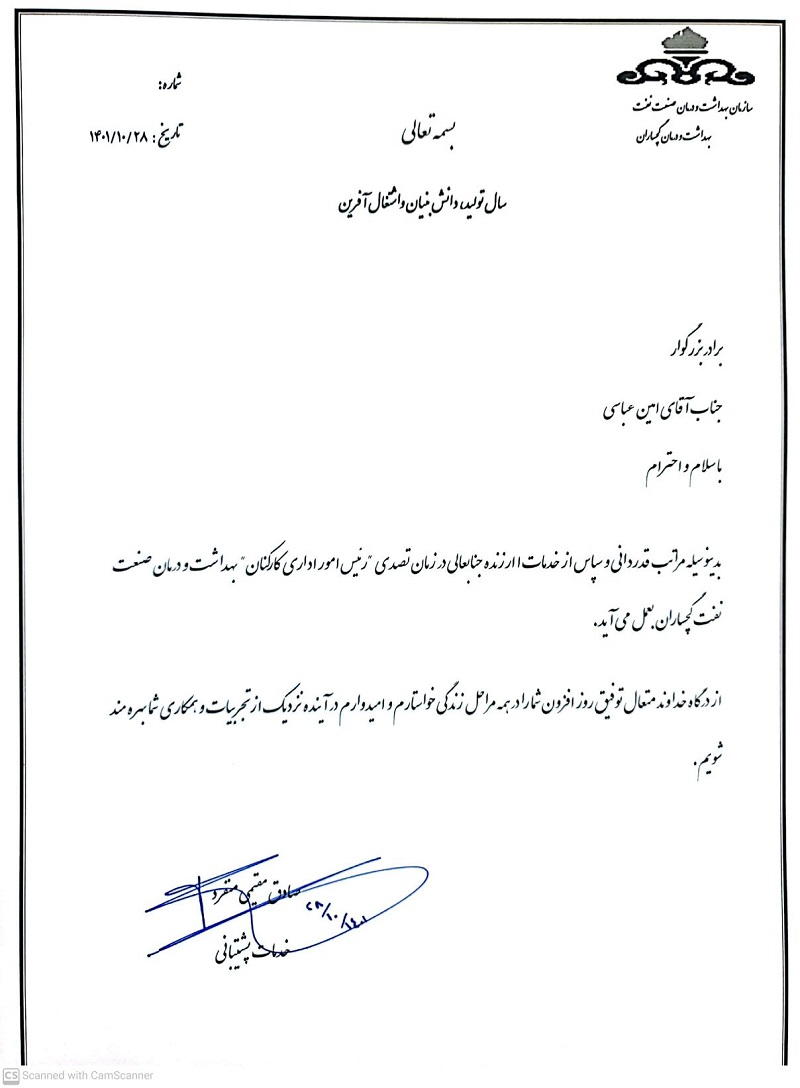 سازمان بهداشت و درمان صنعت نفت
بهداشت و درمان گچساران
شماره:
تاریخ: ۱۴۰۱/۱۰/۲۸
بسمه تعالی
سال تولید، دانش بنیان و اشتغال آفرین
برادر بزرگوار
جناب آقای امین عباسی
با سلام و احترام
بدینوسیله مراتب قدردانی و سپاس از خدمات ارزنده جنابعالی در زمان تصدی "رئیس امور اداری کارکنان" بهداشت و درمان صنعت
نفت گچساران بعمل می آید.
از درگاه خداوند متعال توفیق روز افزون شما را در همه مراحل زندگی خواستارم و امیدوارم در آینده نزدیک از تجربیات و همکاری شما بهره مند
شویم.
صادق مقیمی منفرد
۱۴۰۱/۱۰/۲۸
خدمات پشتیبانی
CS Scanned with CamScanner